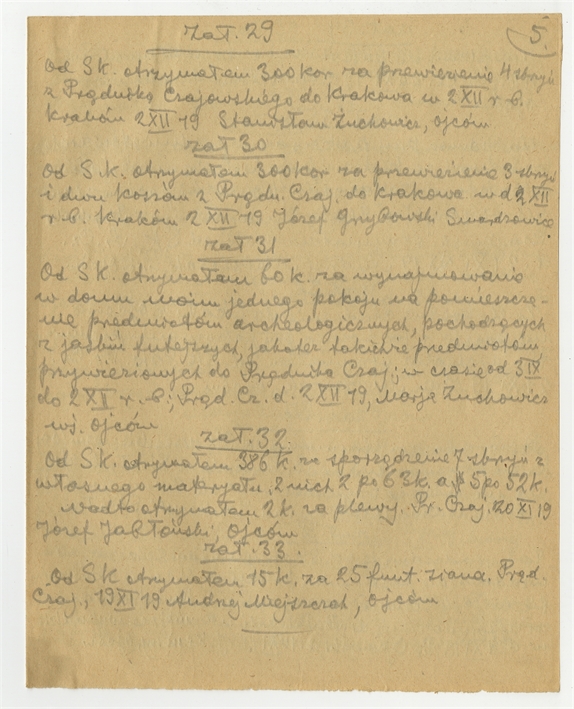 5.
Zał. 29
Od S.K. otrzymałem 300 kor za przewiezienie 4 skrzyń
z Prądnika Czajowskiego do Krakowa w 2 XII r. b.
Kraków 2 XII 19 Stanisław Żuchowicz, Ojców
Zał 30
Od S.K. otrzymałem 300 kor za przewiezienie 3 skrzyń
i dwu koszów z Prądn. Czaj. do Krakowa w d 2 XII
r. b. Kraków 2 XII 19 Józef Grzybowski Smardzowice
Zał 31
Od SK. otrzymałam 60 k. za wynajmowanie
w domu moim jednego pokoju na pomieszcze-
nie przedmiotów archeologicznych, pochodzących
z jaskiń tutejszych, jakoteż takichże przedmiotów
przywiezionych do Prądnika Czaj; w czasie od 3 IX
do 2 XII r. b; Prąd. Cz. d. 2 XII 19, Marja Żuchowicz
wj. Ojców
Zał. 32.
Od SK. otrzymałem 386 k. za sporządzenie 7 skrzyń z
własnego materyału, z nich 2 po 63 k. a 5 po 52 k.
Nadto otrzymałem 2 k. za plewy. Pr. Czaj. 20 XI 19
Józef Jabłoński, Ojców
Zał. 33.
Od SK otrzymałem 15 k. za 25 funt. siana. Prąd.
Czaj., 19 XI 19 Andrzej Miejszczak, Ojców